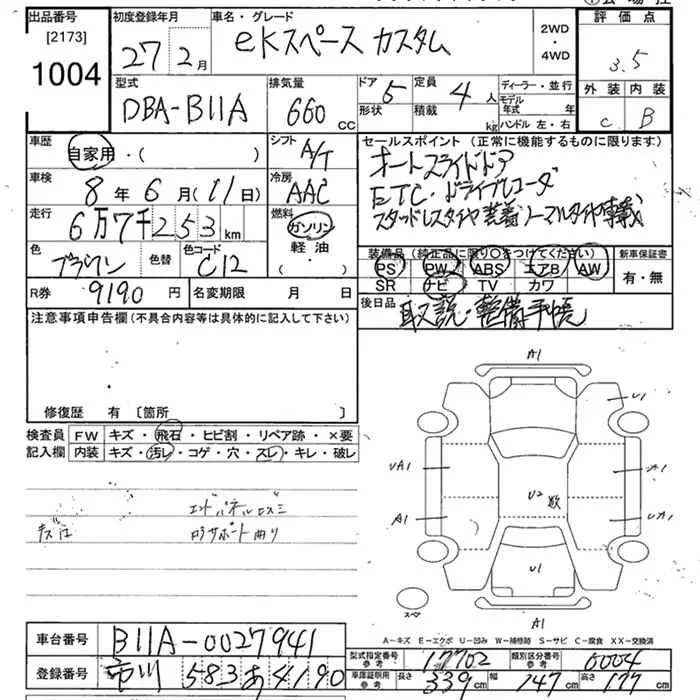 出品番号
[2173]
1004
初度登録年月
27年2月
車名・グレード
eKスペース カスタム
2WD
・
4WD
評価点
3.5
外装 内装
C B
型式
DBA-B11A
排気量
660 CC
ドア 5
形状
定員 4人
積載 kg
ディーラー・並行
モデル年式 年
ハンドル 左・右
車歴
自家用・( )
シフト
A/T
車検
8年6月(11日)
冷房
AAC
走行
6万7千253km
燃料
ガソリン
軽油
・( )
色
ブラウン
色替
色コード
C12
R券 9190円
名変期限 月 日
セールスポイント(正常に機能するものに限ります)
オートスライドドア
ETC・ドライブレコーダ
スタッドレスタイヤ装着 ノーマルタイヤ車載
装備品(純正品に限り○をつけてください)
PS PW ABS エアB AW
SR ナビ TV カワ
新車保証書
有・無
後日品
取説・整備手帳
注意事項申告欄(不具合内容等は具体的に記入して下さい)
修復歴 有 [箇所 ]
検査員記入欄
FW キズ・飛石・ヒビ割・リペア跡・×要
内装 キズ・汚レ・コゲ・穴・スレ・キレ・破レ
エンドパネルロズミ
キズ
サポート曲り
A1
U1
UA1
U2 数
A1
U1
A1
スペア
A-キズ E-エクボ U-凹み W-補修跡 S-サビ C-腐食 XX-交換済
車台番号 B11A-0027941
登録番号 市川 583 あ 4190
型式指定番号参考 17702
類別区分番号参考 0004
車庫証明用参考 長さ 339cm 幅 147cm 高さ 177cm